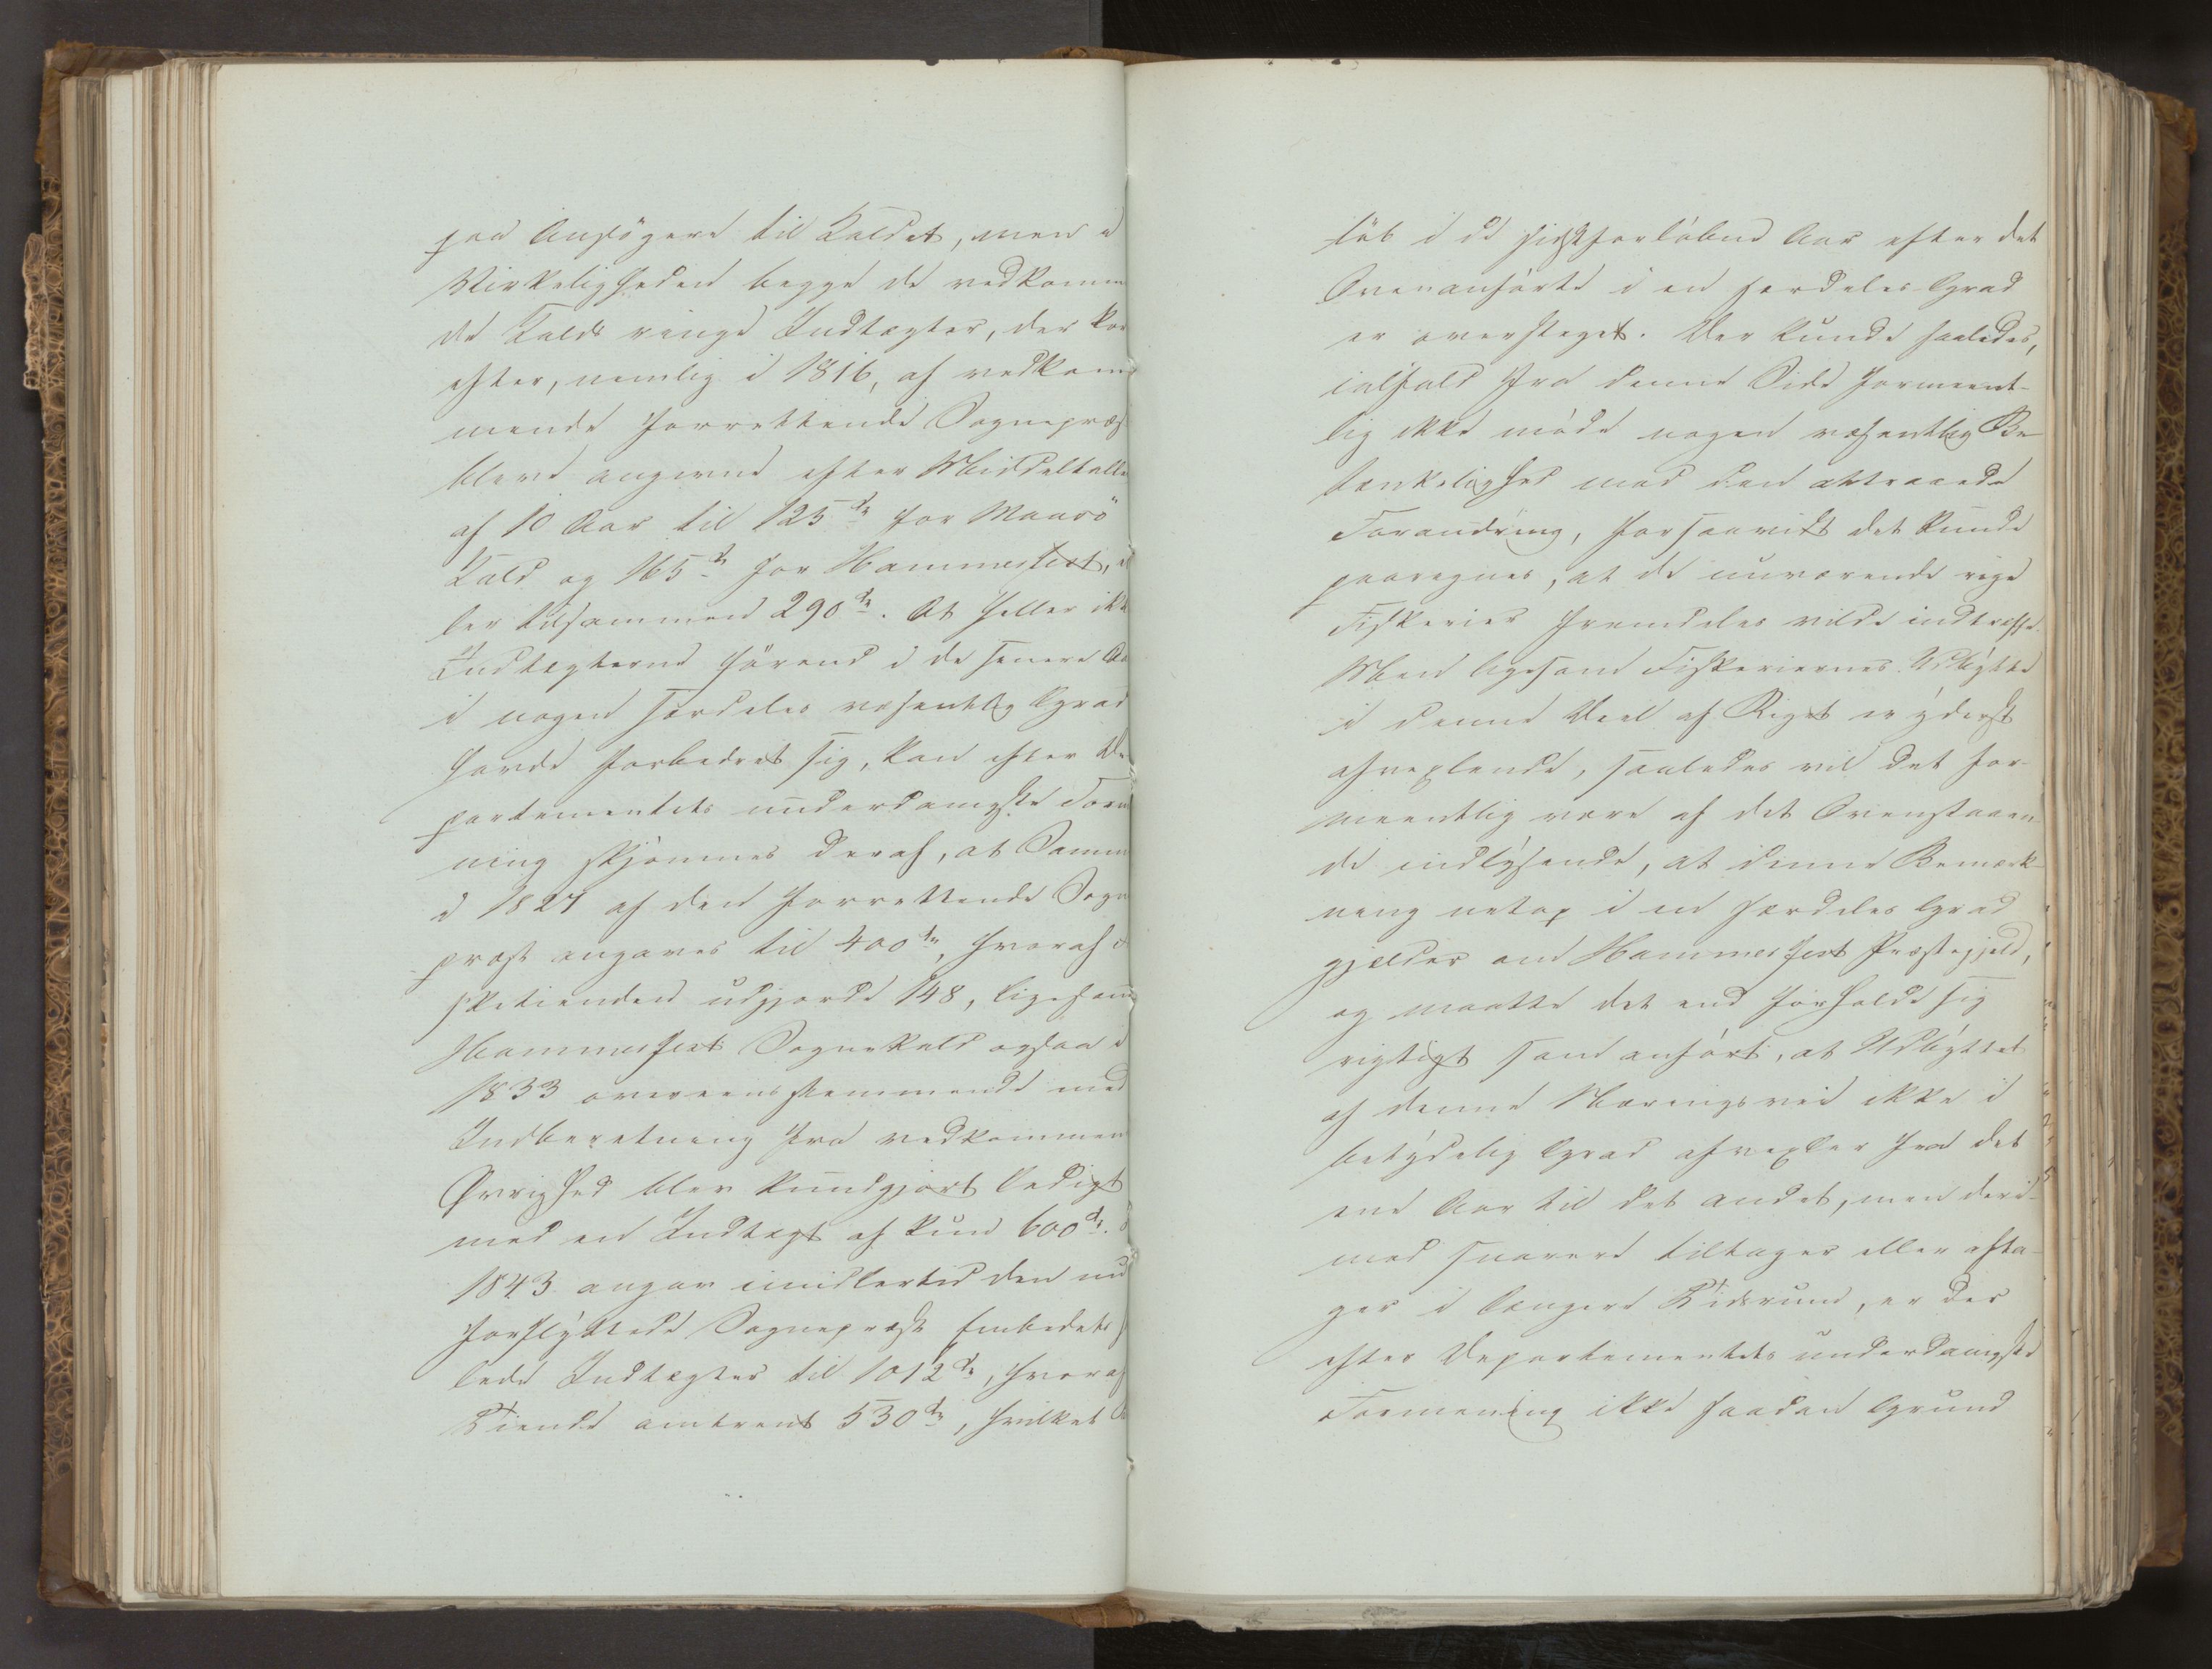 paa Ansögere til Kaldet, men i
Virkeligheden begge de vedkommen
de Kalds ringe Indtægter, der kor
efter, nemlig i 1816, af vedkom
mende forrettende Sognepræst
bleve angivne efter Middeltallet
af 10 Aar til 125 d for Maasö
Kald og 165 d for Hammerfest, el
ler tilsammen 290 d. At heller ikke
Indtægterne förend i de senere Aar
i nogen særdeles væsentlig Grad
havde forbedret sig, kan efter De
partementets underdanigste Forme
ning skjønnes deraf, at Samme
i 1827 af den forrettende Sogne
præst angaves til 400 d, hvoraf Fi
sketienden udgjorde 148, ligesom
Hammerfest Sognekald ogsaa i
1833 overeensstemmende med
Indberetning fra vedkommende
Øvrighed blev kundgjort ledigt
med en Indtægt af kun 600 d. I
1843 angav imidlertid den nu
forflyttede Sognepræst Embedets
lede Indtægter til 1012 d, hvoraf
Tiende omtrent 530 d, hvilket
löb i de sidstforløbne Aar efter det
Ovenanførte i en særdeles Grad
er oversteget. Der kunde saaledes,
ialfald fra denne Side formeent-
lig ikke möde nogen væsentlig Be
tænkelighed mod den attraaede
Forandring, forsaavidt det kunde
paaregnes, at de nuværende rige
Fiskerier fremdeles vilde indtræffe.
Men ligesom Fiskeriernes Udbytte
i denne Deel af Riget er yderst
afvexlende, saaledes vil det for-
meentlig være af det Ovenstaaen
de indlysende, at denne Bemærk-
ning netop i en særdeles Grad
gjelder om Hammerfest Præstegjeld,
og maatte det end forholde sig
rigtigt som anført, at Udbyttet
af denne Næringsvei ikke i
betydelig Grad afvexler fra det
ene Aar til det andet, men deri-
mod snarere tiltager eller afta-
ger i længere Tidsrum, er der
efter Departementets underdanigste
Formening ikke saadan Grund